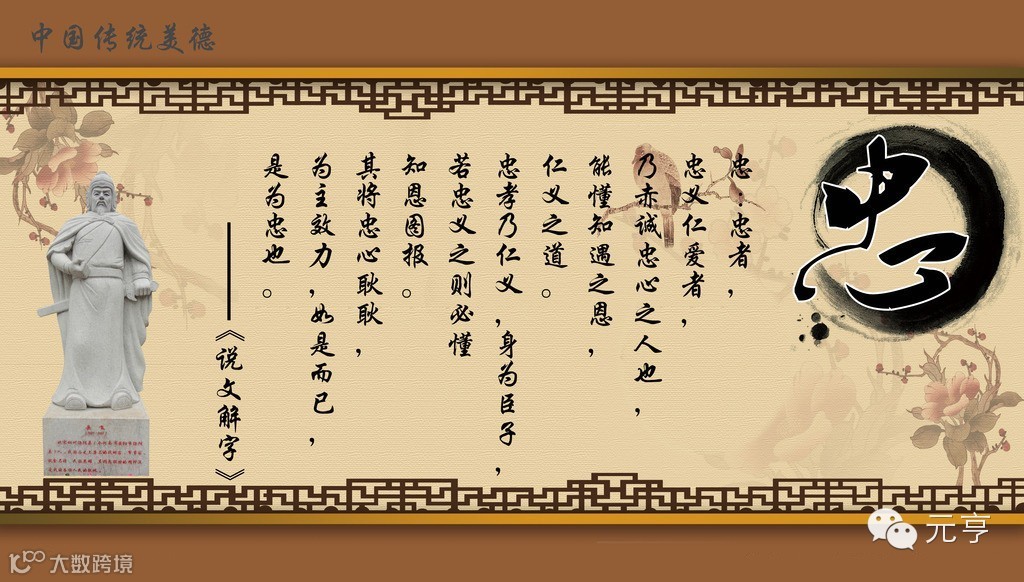 中国传统美德
忠
忠：忠者，
忠义仁爱者，
乃赤诚忠心之人也，
能懂知遇之恩，
仁义之道。
忠孝乃仁义，身为臣子，
若忠义之则必懂
知恩图报。
其将忠心耿耿，
为主效力，如是而已，
是为忠也。
——《说文解字》
岳飞
元亨
大数跨境